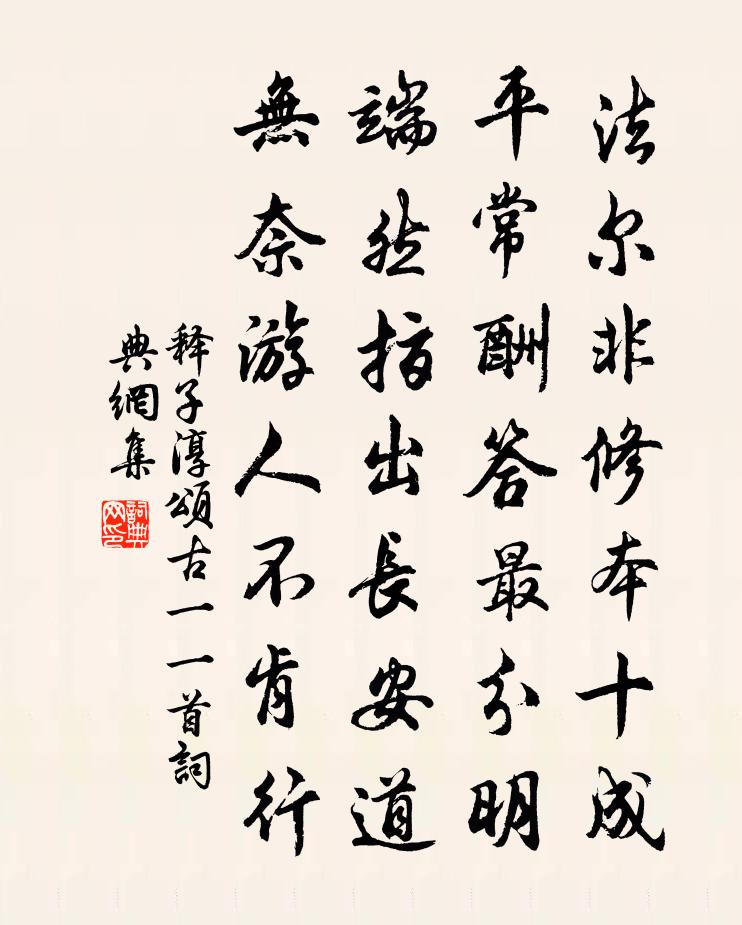 法尔非修本十成
平常酬答最分明
端然指出長安道
無奈游人不肯行
释子淳頌古一一首詞
典網集
詞典
网印